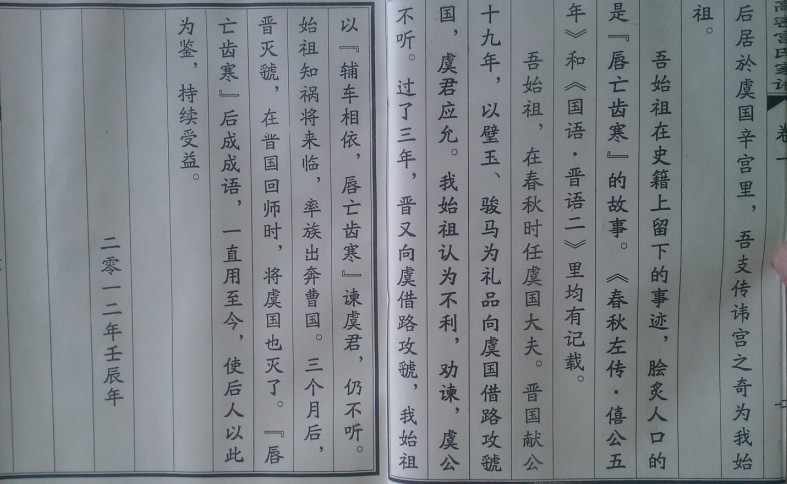 高密宫氏家谱 卷一
后居於虞国辛宫里，吾支传讳宫之奇为我始
祖。
吾始祖在史籍上留下的事迹，脍炙人口的
是『唇亡齿寒』的故事。《春秋左传·僖公五
年》和《国语·晋语二》里均有记载。
吾始祖，在春秋时任虞国大夫。晋国献公
十九年，以璧玉、骏马为礼品向虞国借路攻虢
国，虞君应允。我始祖认为不利，劝谏，虞公
不听。过了三年，晋又向虞借路攻虢，我始祖
以『辅车相依，唇亡齿寒』谏虞君，仍不听。
始祖知祸将来临，率族出奔曹国。三个月后，
晋灭虢，在晋国回师时，将虞国也灭了。『唇
亡齿寒』后成成语，一直用至今，使后人以此
为鉴，持续受益。
二零一二年壬辰年